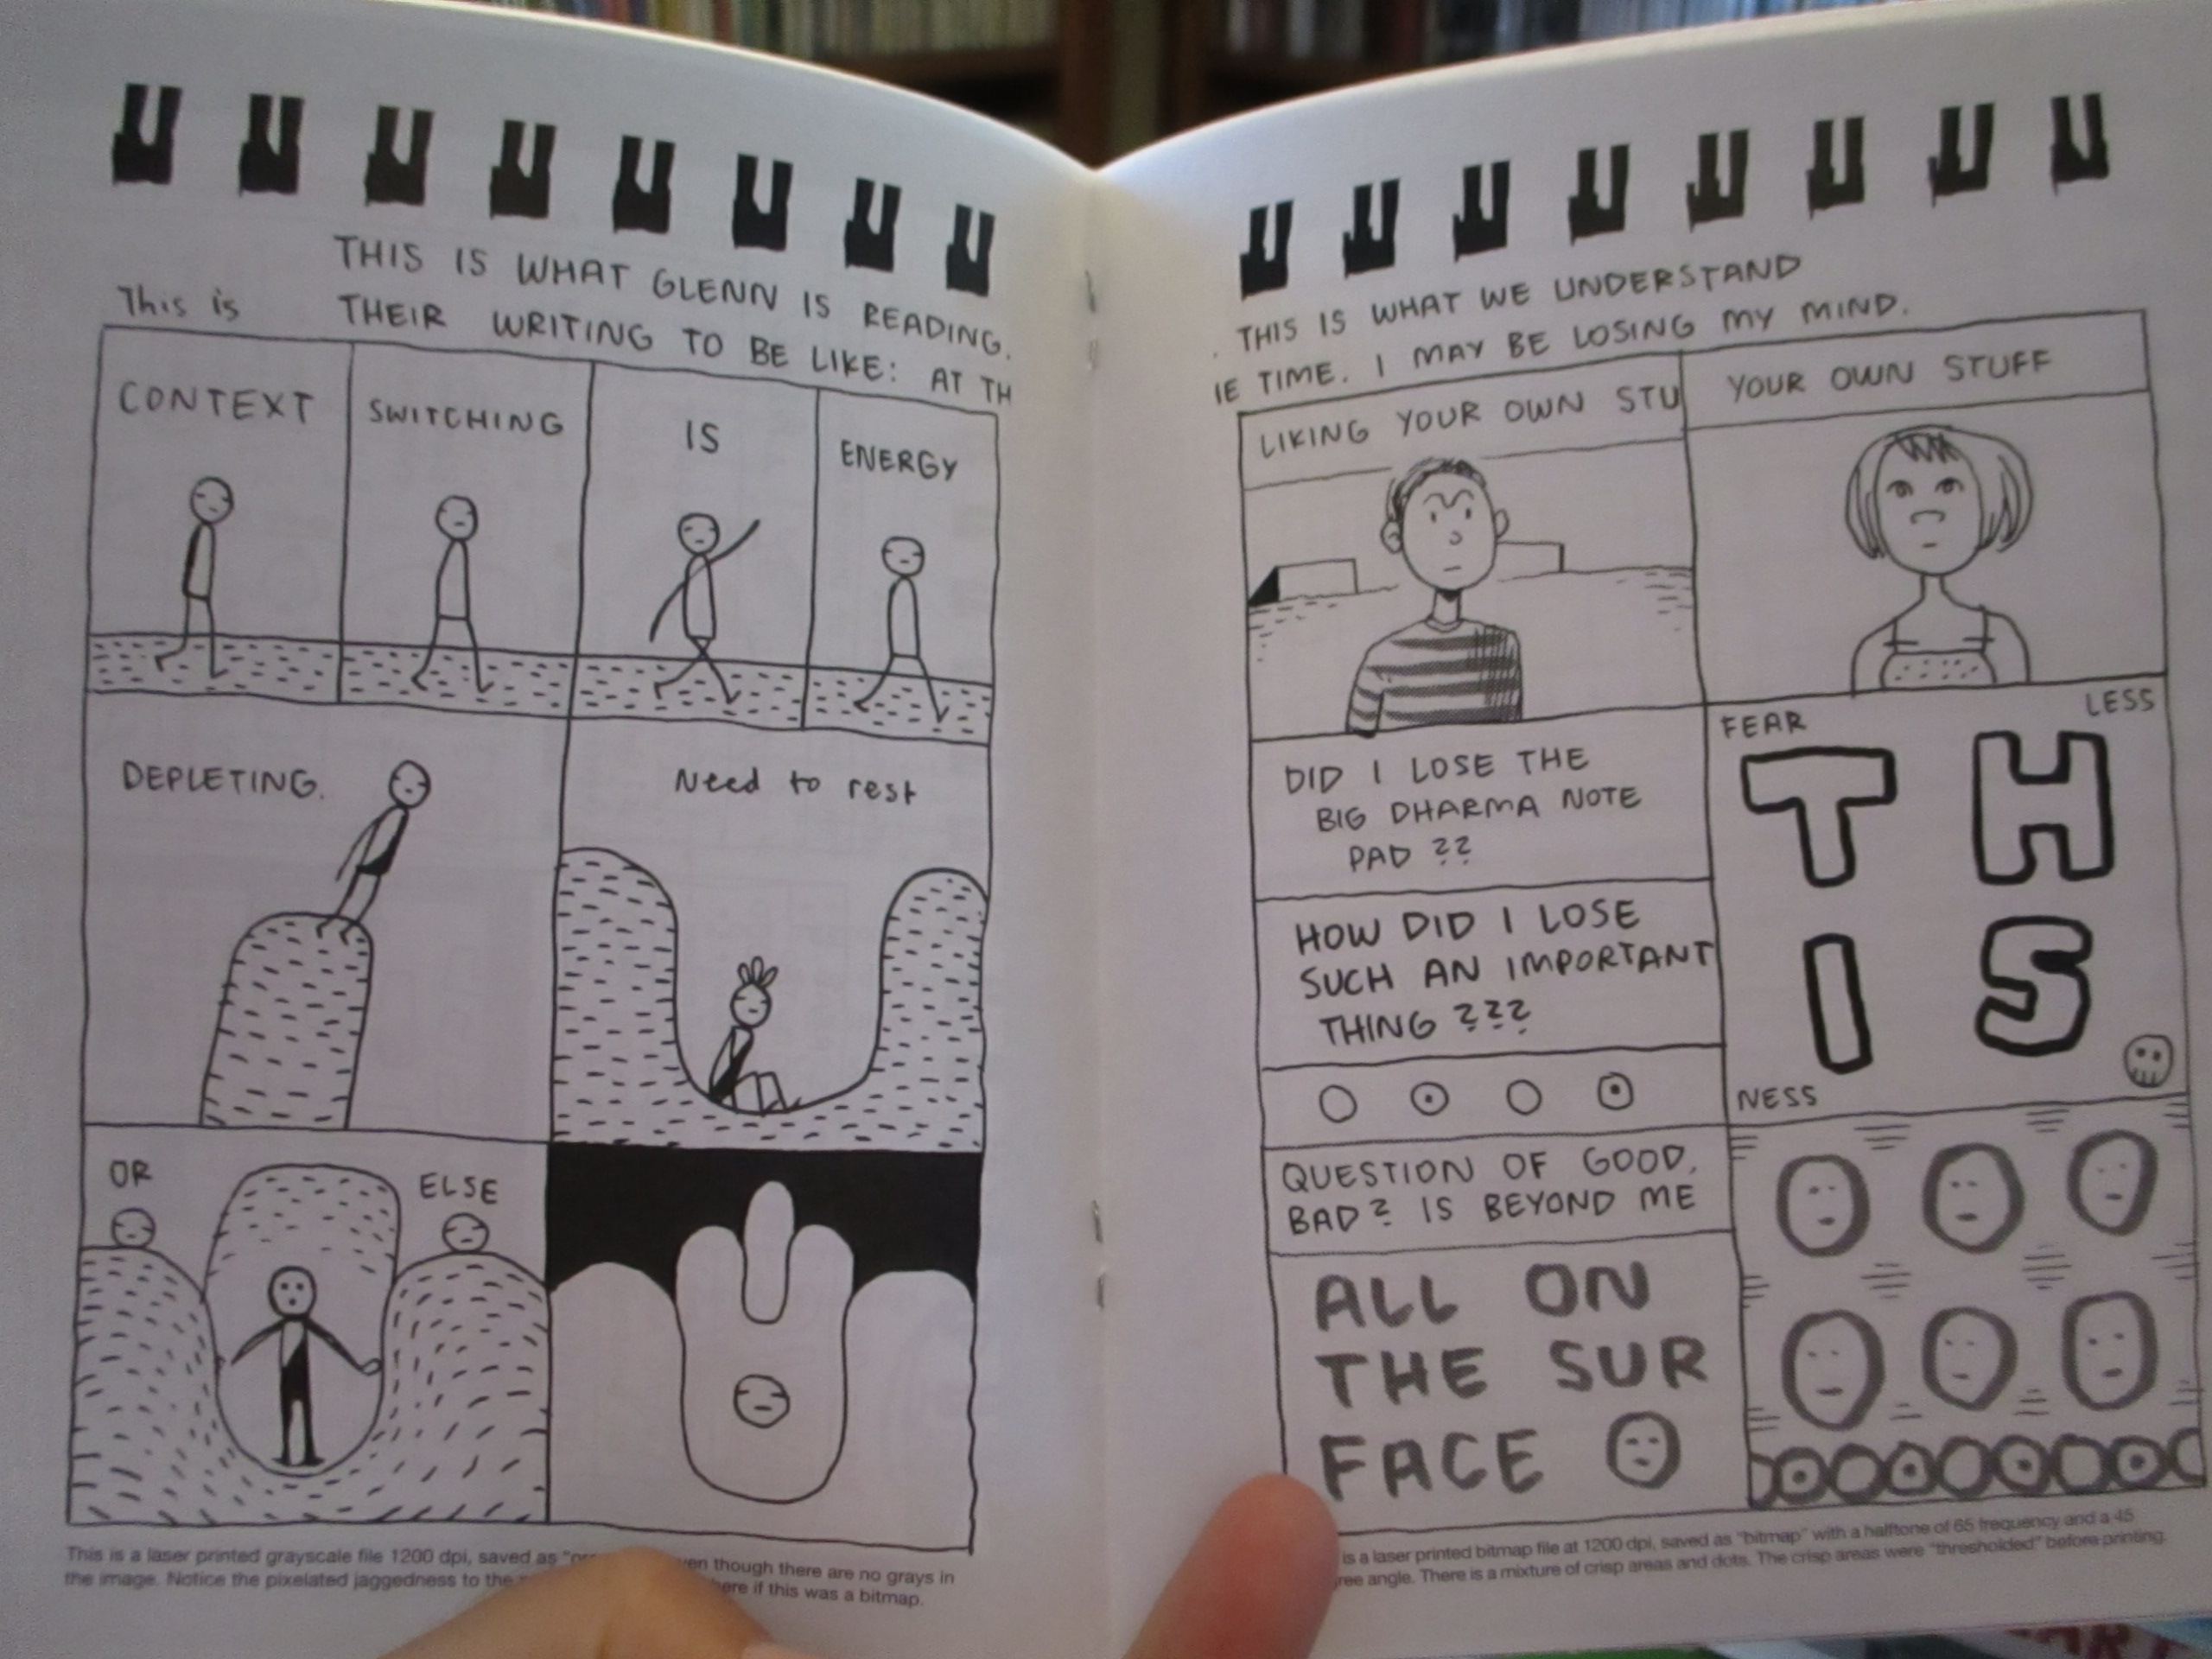 THIS IS WHAT GLENN IS READING.
This is THEIR WRITING TO BE LIKE: AT TH
CONTEXT
SWITCHING
IS
ENERGY
DEPLETING.
Need to rest
OR
ELSE
This is a laser printed grayscale file 1200 dpi, saved as even though there are no grays in
the image. Notice the pixelated jaggedness to the if this was a bitmap.
. THIS IS WHAT WE UNDERSTAND
IE TIME. I MAY BE LOSING MY MIND.
LIKING YOUR OWN STU
YOUR OWN STUFF
DID I LOSE THE
BIG DHARMA NOTE
PAD ??
HOW DID I LOSE
SUCH AN IMPORTANT
THING ???
QUESTION OF GOOD,
BAD? IS BEYOND ME
ALL ON
THE SUR
FACE
FEAR LESS
TH
IS
NESS
is a laser printed bitmap file at 1200 dpi, saved as "bitmap" with a halftone of 65 frequency and a 45
angle. There is a mixture of crisp areas and dots. The crisp areas were "thresholded" before printing.